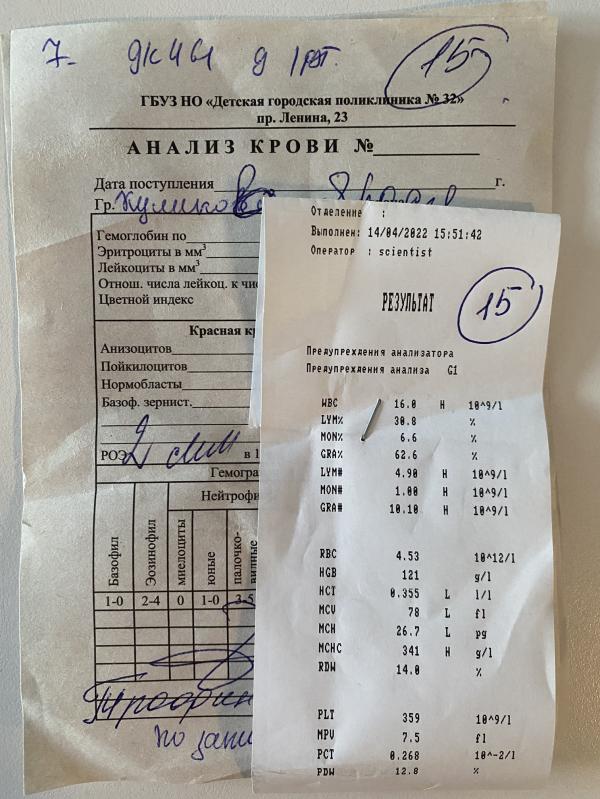 7-
15
ГБУЗ НО «Детская городская поликлиника № 32»
пр. Ленина, 23
АНАЛИЗ КРОВИ №
Дата поступления г.
Гр.
Гемоглобин по
Эритроциты в мм³
Лейкоциты в мм³
Отнош. числа лейкоц. к
Цветной индекс
Красная
Анизоцитов
Пойкилоцитов
Нормобласты
Базоф. зернист.
РОЭ 2 в 1
Гемогра
Нейтрофи
Базофил
Эозинофил
миелоциты
юные
палочко-
1-0 2-4 0 1-0 3-5
Отделение :
Выполнен: 14/04/2022 15:51:42
Оператор : scientist
РЕЗУЛЬТАТ
15
Предупреждения анализатора
Предупреждения анализа G1
WBC 16.0 H 10^9/l
LYM% 30.8 %
MON% 6.6 %
GRA% 62.6 %
LYM# 4.90 H 10^9/l
MON# 1.00 H 10^9/l
GRA# 10.10 H 10^9/l
RBC 4.53 10^12/l
HGB 121 g/l
HCT 0.355 L l/l
MCV 78 L fl
MCH 26.7 L pg
MCHC 341 H g/l
RDW 14.0 %
PLT 359 10^9/l
MPV 7.5 fl
PCT 0.268 10^-2/l
PDW 12.8 %